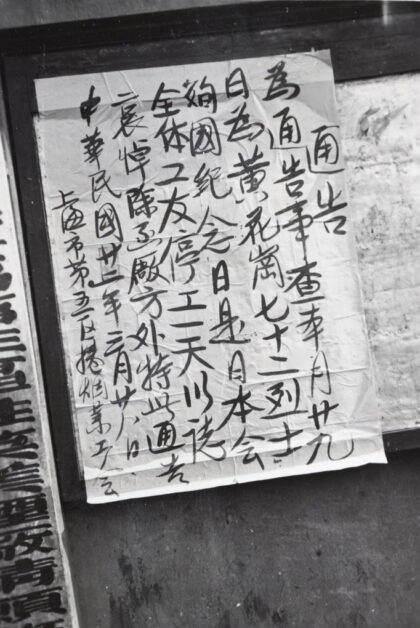 通告
為通告事查本月廿九
日為黃花崗七十二烈士
殉國紀念日是日本会
全体工友停工一天以誌
哀悼除函廠方外特此通告
中華民國廿二年三月廿八日
上海市第五區捲烟業工会